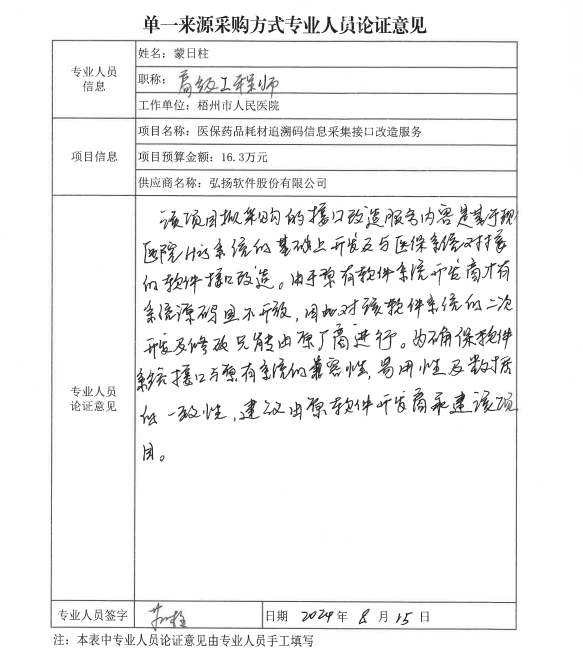 单一来源采购方式专业人员论证意见
专业人员
信息
姓名：蒙日柱
职称：高级工程师
工作单位：梧州市人民医院
项目信息
项目名称：医保药品耗材追溯码信息采集接口改造服务
项目预算金额：16.3万元
供应商名称：弘扬软件股份有限公司
专业人员
论证意见
该项目拟采购的接口改造服务内容是基于现
医院His系统的基础上开发及与医保系统对接
的软件接口改造。由于原有软件系统开发商才有
系统源码且不开放，因此对该软件系统的二次
开发及修改只能由原厂商进行。为确保软件
系统接口与原有系统的兼容性，易用性及数据
一致性，建议由原软件开发商承建该项
目。
专业人员签字
日期 2024年 8 月 15 日
注：本表中专业人员论证意见由专业人员手工填写